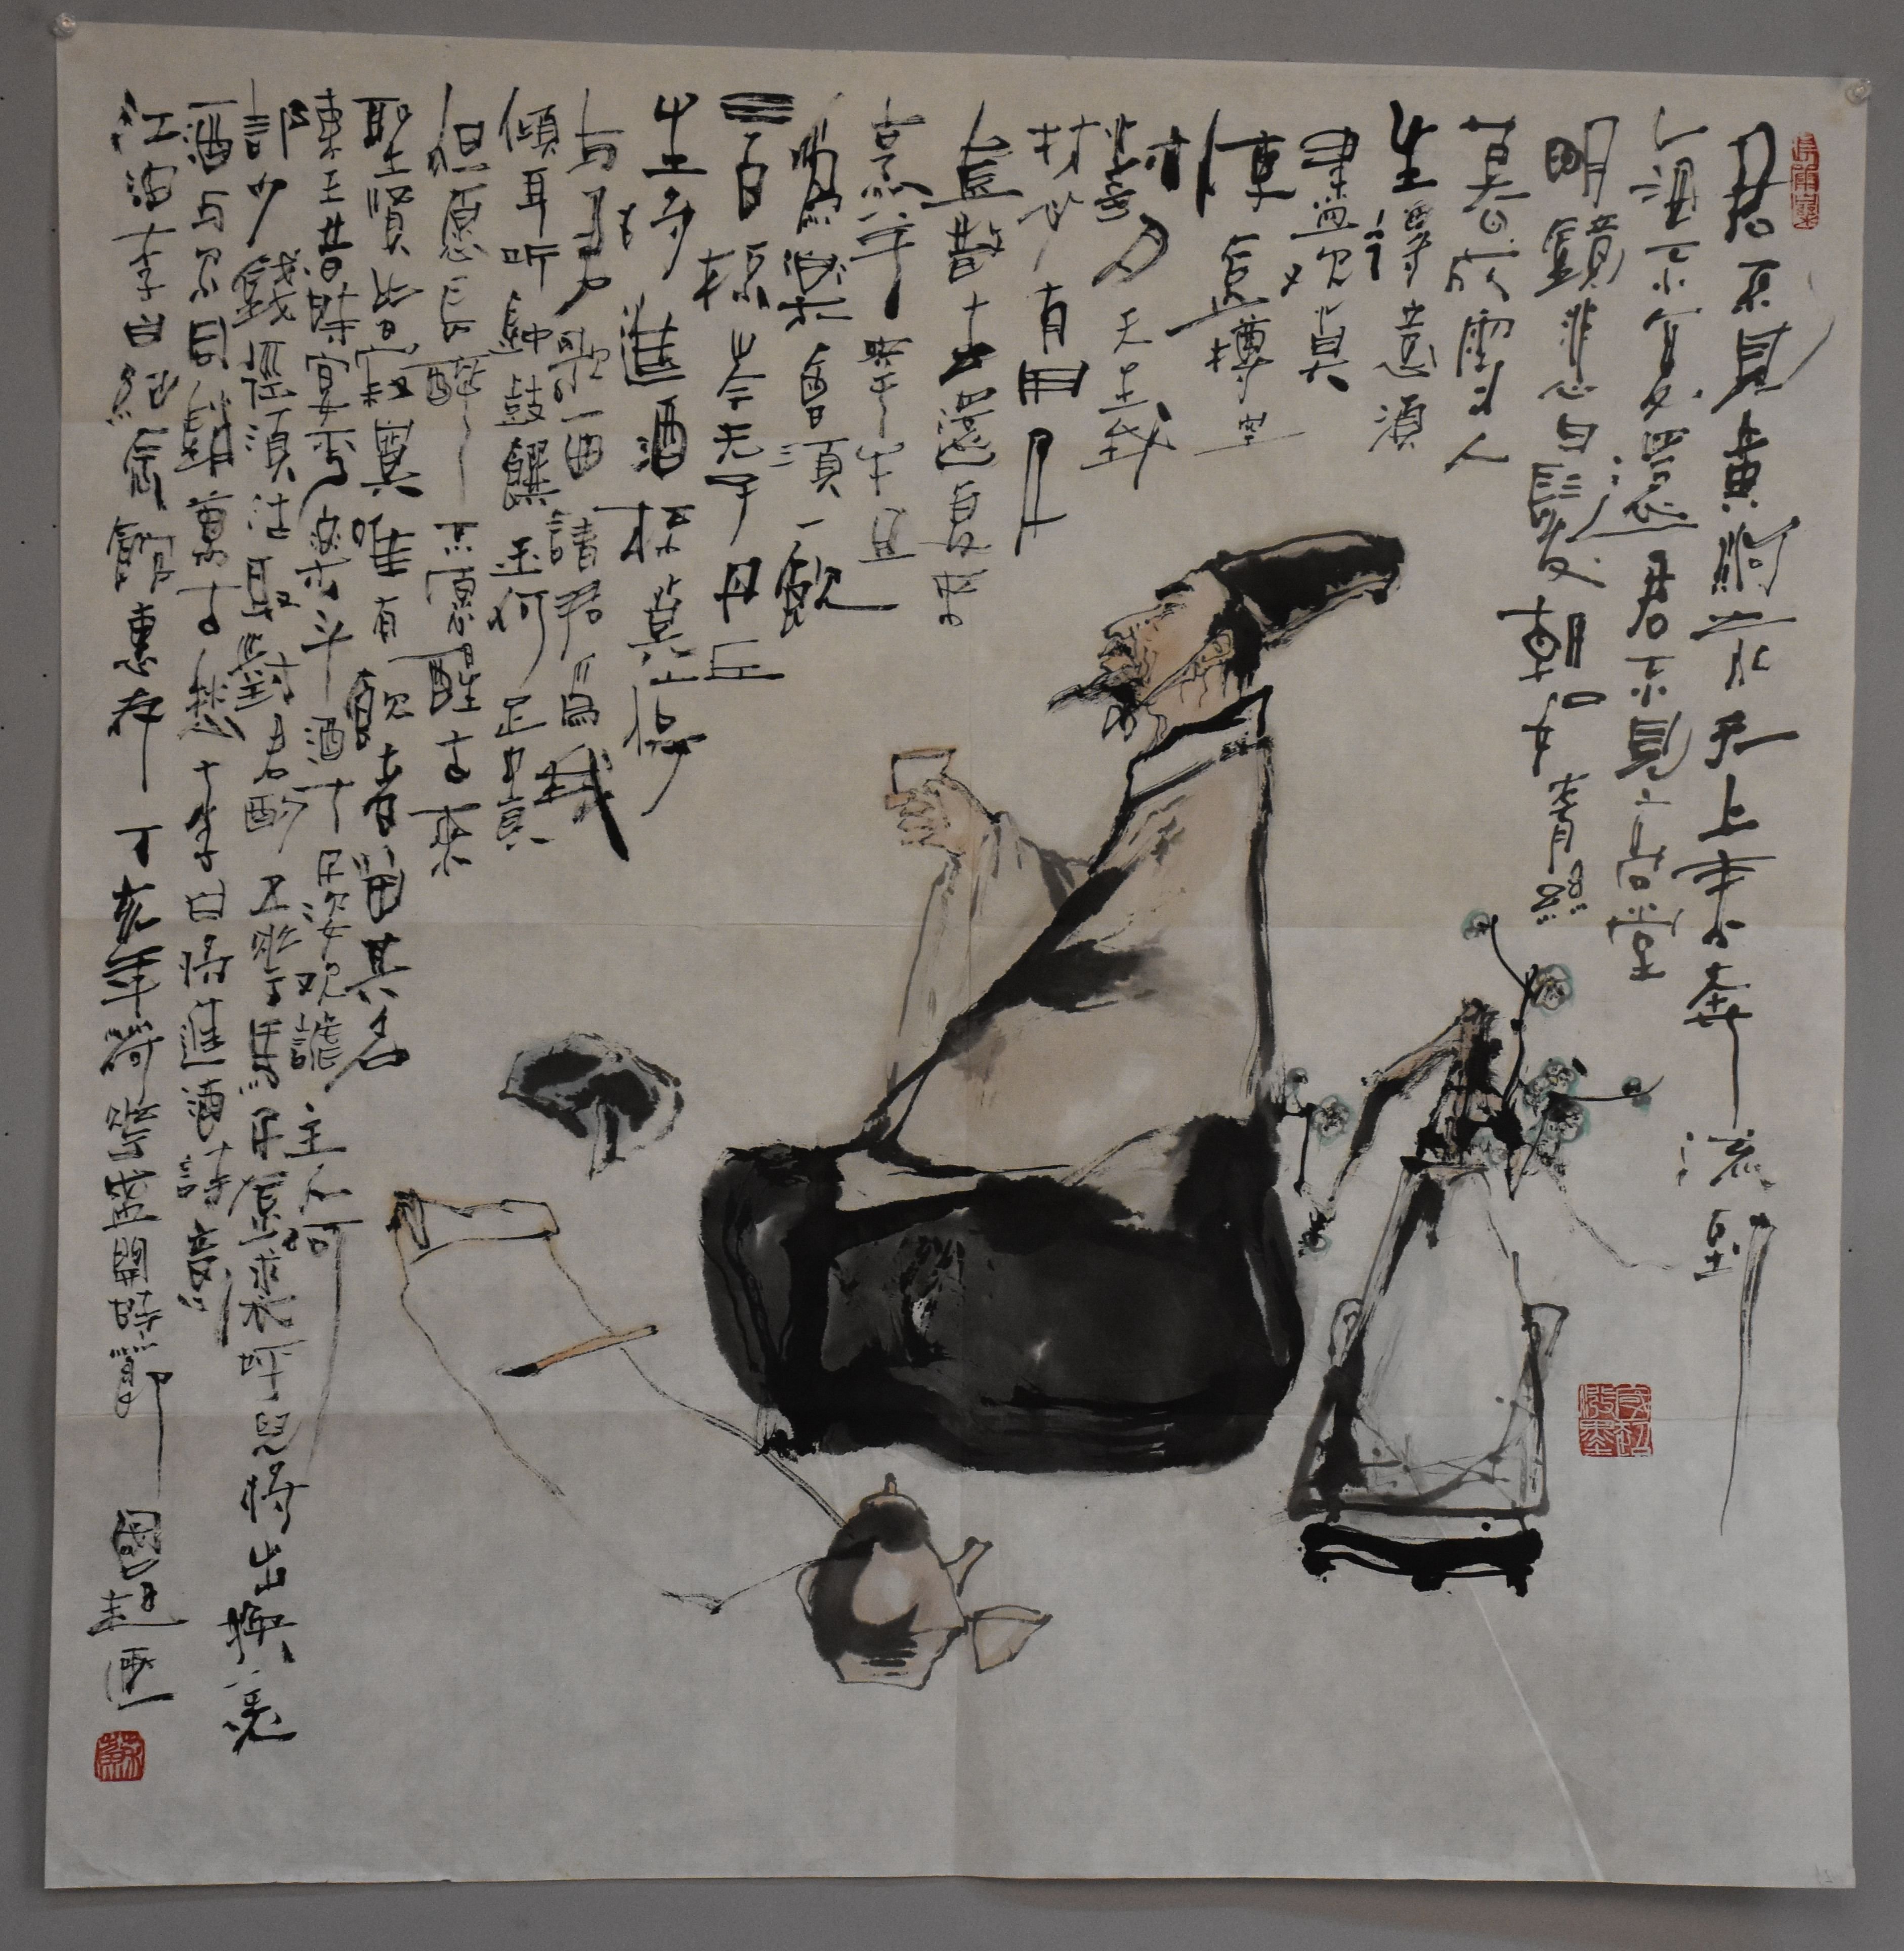 君不見黄河之水天上来奔流到
海不復還君不見高堂
明鏡悲白髮朝如青絲
暮成雪人
生得意須
盡歡莫
使金樽空
對月天生我
材必有用
金散去還復来
烹羊宰牛且
為樂會須一飲
三百杯岑夫子丹丘
生将進酒杯莫停
与君歌一曲請君為我
傾耳听鐘鼓饌玉何足貴
但願長醉不願醒古来
聖賢皆寂寞唯有飲者留其名
陳王昔時宴平樂斗酒十千恣歡謔主人何
少錢徑須沽取對君酌五花馬千金裘呼兒将出換美
酒与尔同銷萬古愁李白将進酒詩意
江油李白紀念館惠存 丁亥年荷花盛開時節 國超画
蘇